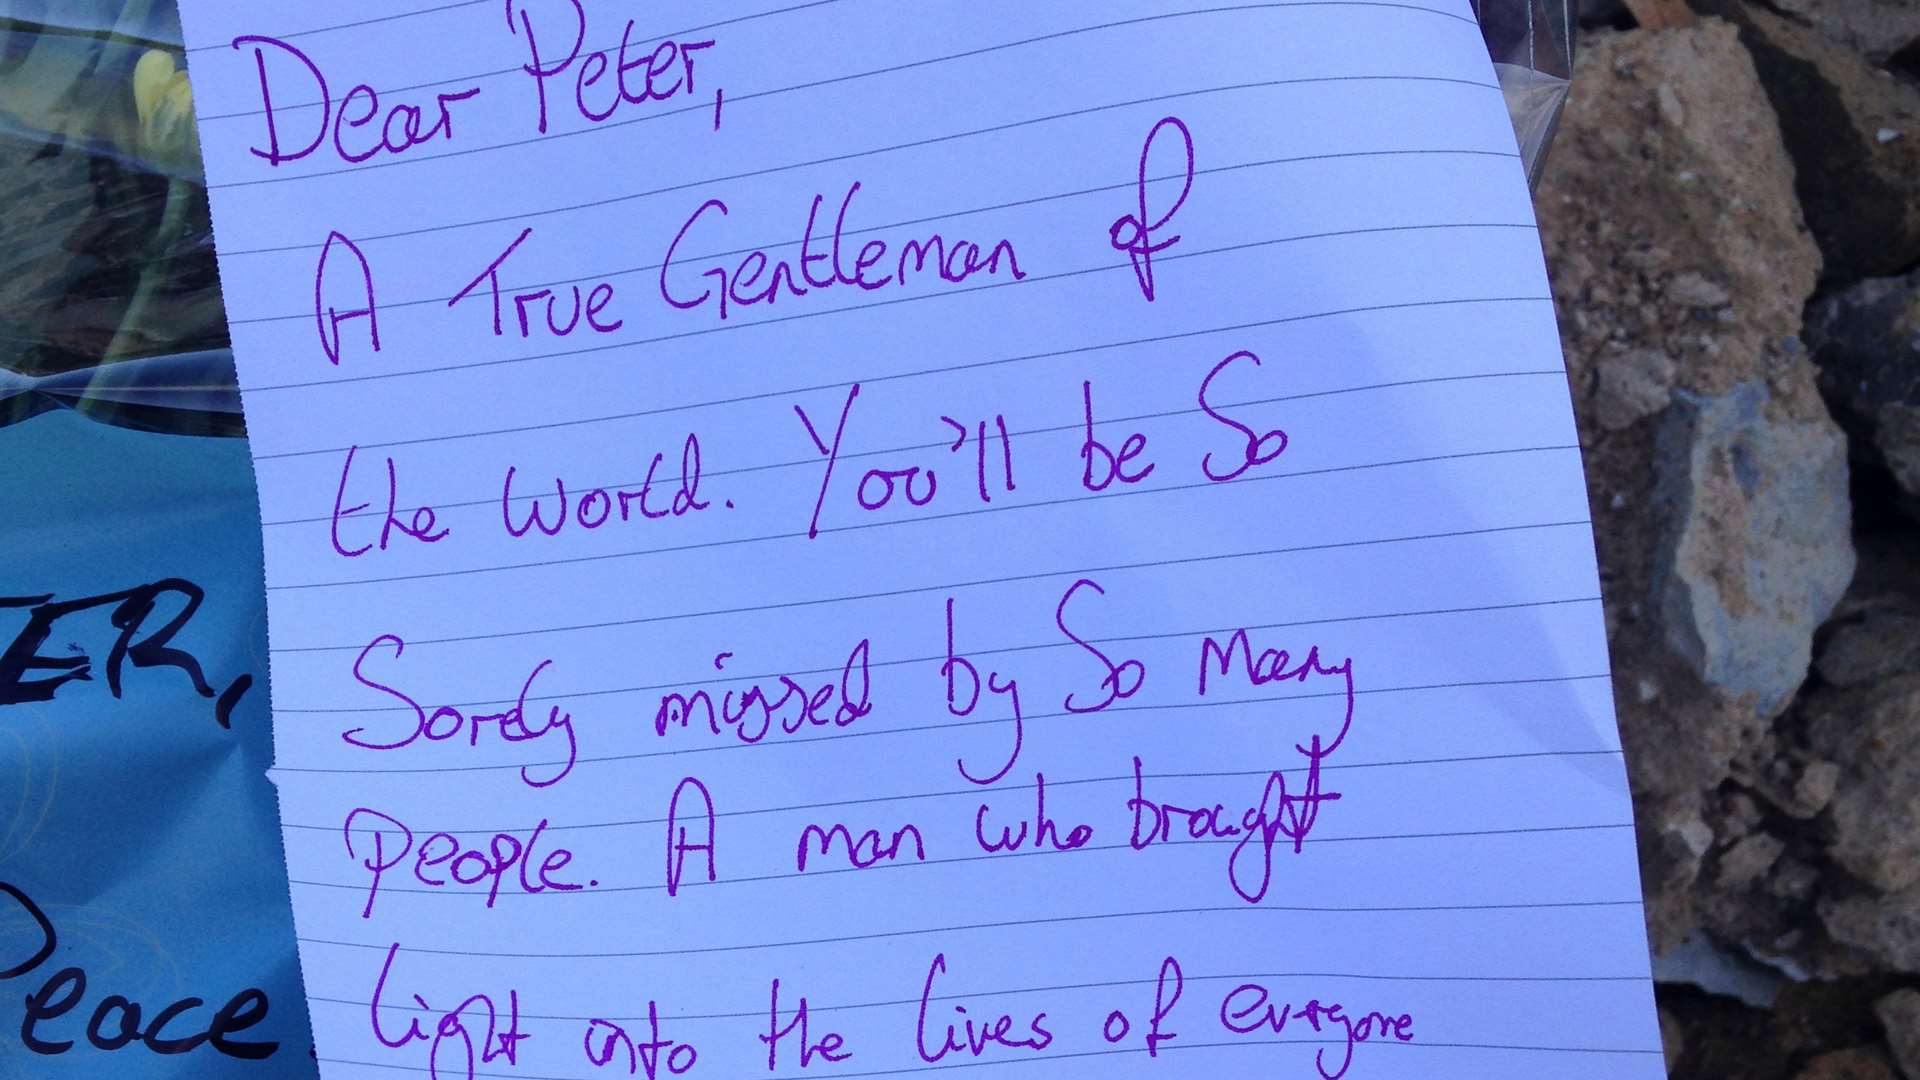 Dear Peter,
A True Gentleman of
the world. You'll be So
Sorely missed by So Many
People. A man who brought
light into the lives of everyone
ER,
Peace